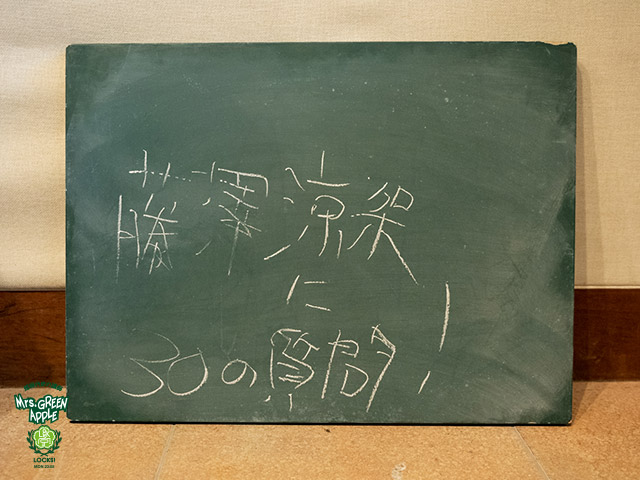 藤澤涼架
に
30の質問!
Mrs. GREEN
APPLE
LOCKS!